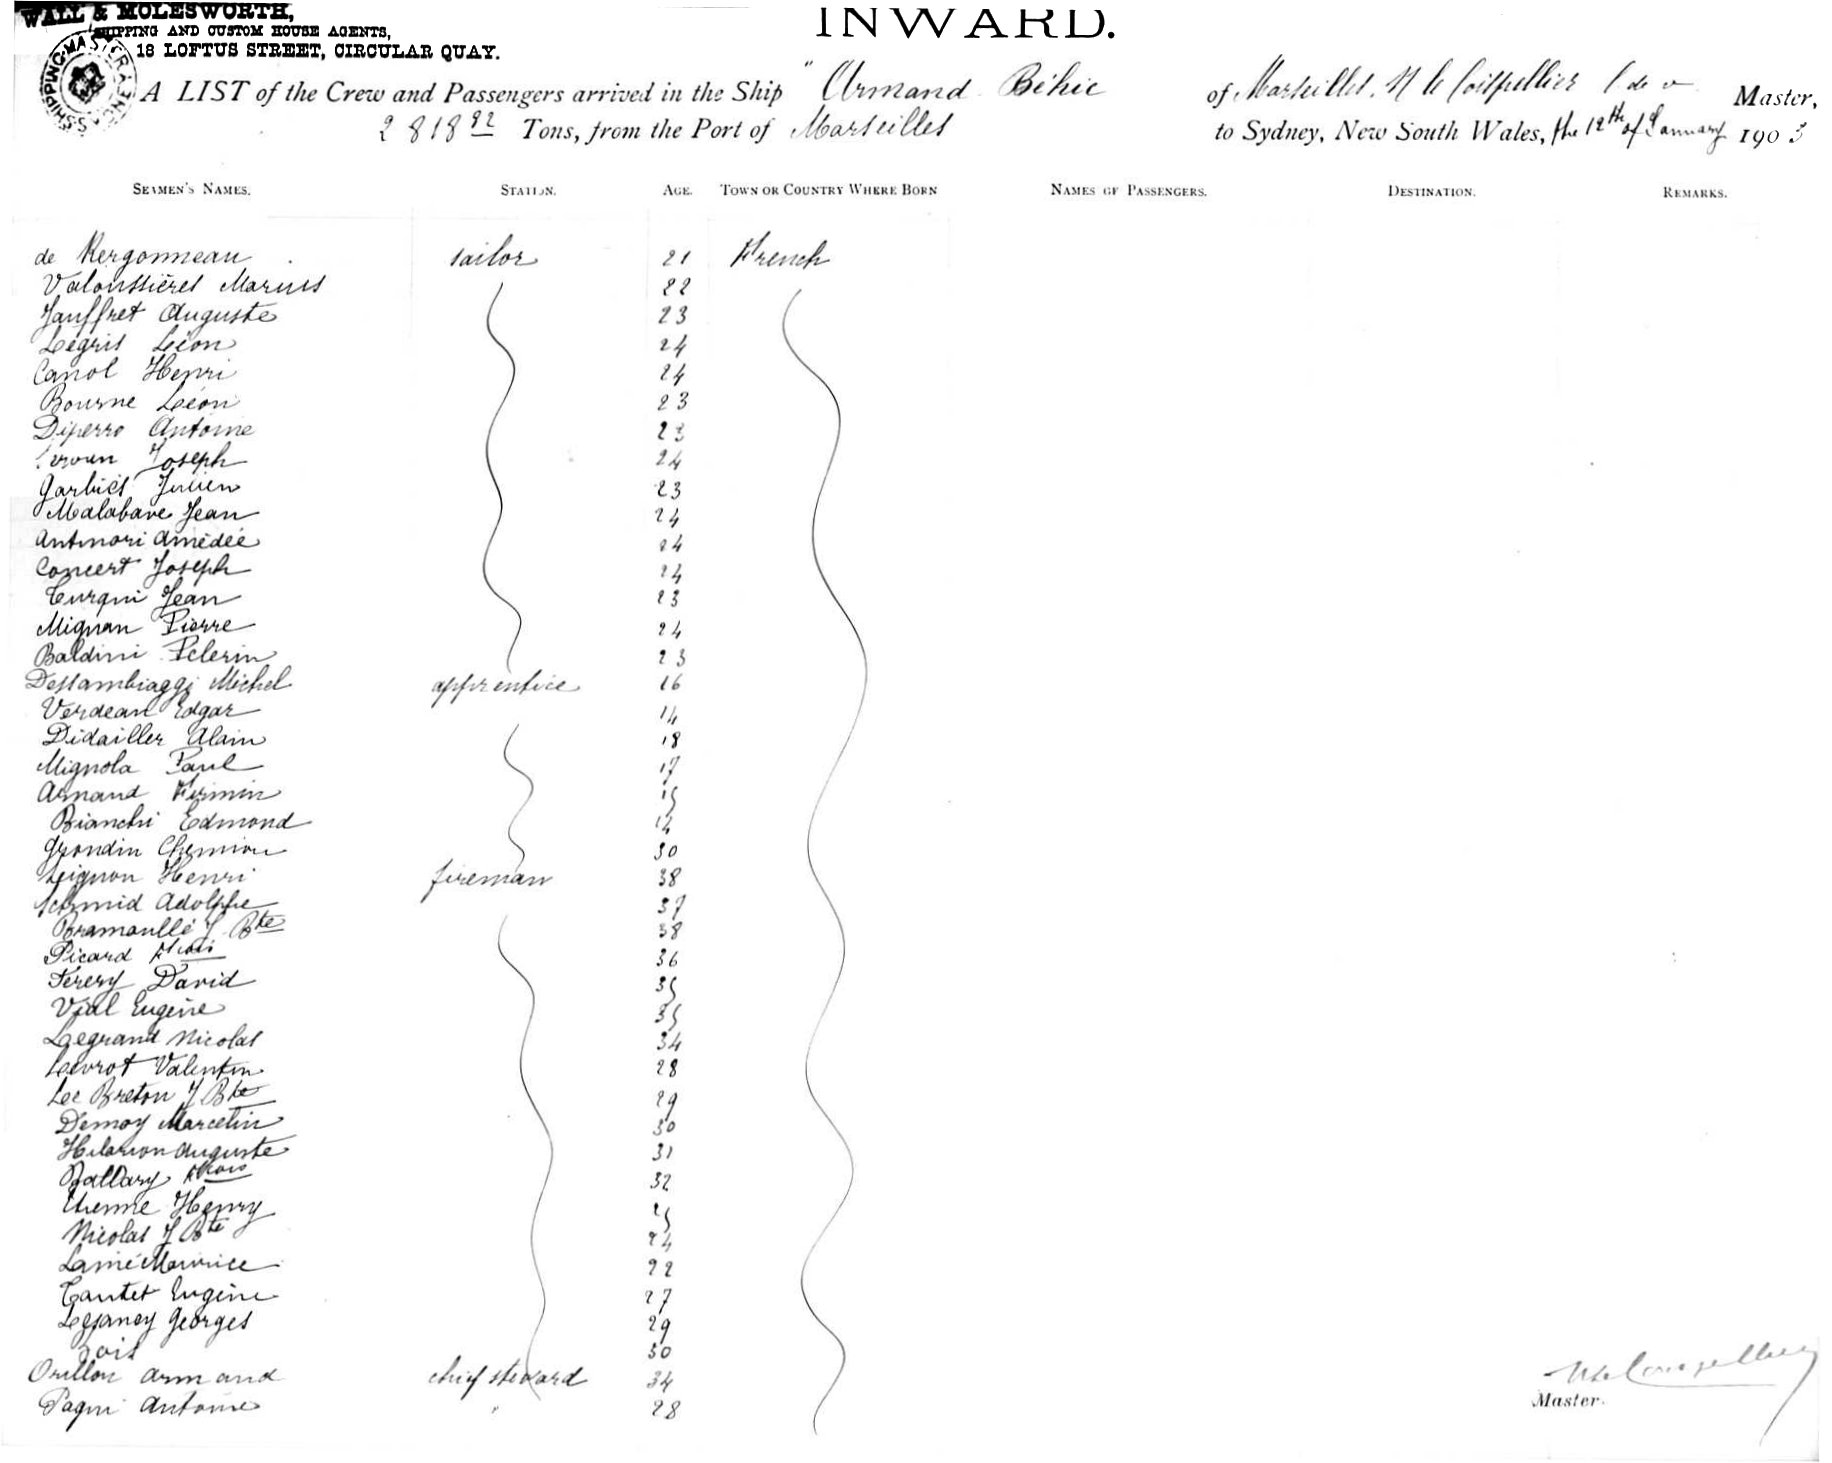 WALL & MOLESWORTH,
SHIPPING AND CUSTOM HOUSE AGENTS,
18 LOFTUS STREET, CIRCULAR QUAY.
SHIPPING MASTER SYDNEY
INWARD.
A LIST of the Crew and Passengers arrived in the Ship "Armand Béhic of Marseilles, Master,
2818 92 Tons, from the Port of Marseilles to Sydney, New South Wales, the 12th of January 1903
SEAMEN'S NAMES. STATION. AGE. TOWN OR COUNTRY WHERE BORN NAMES OF PASSENGERS. DESTINATION. REMARKS.
de Kergonneau sailor 21 French
Valoussières Marius 22
Jauffret Auguste 23
Legris Léon 24
Canol Henri 24
Bourne Léon 23
Diperro Antoine 23
Joseph 24
Garbiés Julien 23
Malabave Jean 24
Antinori Amédée 24
Concert Joseph 24
Turqui Jean 23
Mignan Pierre 24
Baldini Pelerin 23
Dessambiaggi Michel apprentice 16
Verdean Edgar 14
Didailler Alain 18
Mignola Paul 17
Armand Firmin 15
Bianchi Edmond 14
Grondin 30
Henri fireman 38
Schmid Adolphe 37
Bramoullé J Bte 38
Picard Fcois 36
Ferery David 35
Vial Eugène 35
Legrand Nicolas 34
Levrot Valentin 28
Lee Breton J Bte 29
Demoy Marcelin 30
Hilarion Auguste 31
Ballary Fcois 32
Etienne Henry 25
Nicolas J Bte 24
Lainé Maurice 22
Tautet Eugène 27
Georges 29
30
Orillon Armand chief steward 34
Pagni Antoine " 28
Master.